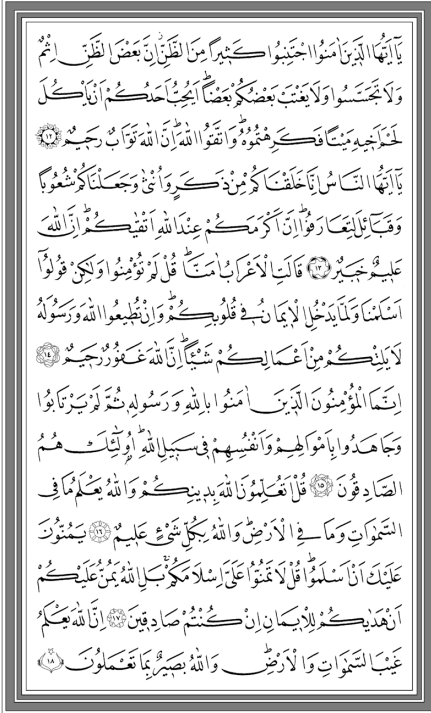 يَٓا اَيُّهَا الَّذٖينَ اٰمَنُوا اجْتَنِبُوا كَثٖيرًا مِنَ الظَّنِّۘ اِنَّ بَعْضَ الظَّنِّ اِثْمٌ
وَلَا تَجَسَّسُوا وَلَا يَغْتَبْ بَعْضُكُمْ بَعْضًاؕ اَيُحِبُّ اَحَدُكُمْ اَنْ يَاْكُلَ
لَحْمَ اَخٖيهِ مَيْتًا فَكَرِهْتُمُوهُؕ وَاتَّقُوا اللّٰهَؕ اِنَّ اللّٰهَ تَوَّابٌ رَحٖيمٌ ﴿١٢﴾
يَٓا اَيُّهَا النَّاسُ اِنَّا خَلَقْنَاكُمْ مِنْ ذَكَرٍ وَاُنْثٰى وَجَعَلْنَاكُمْ شُعُوبًا
وَقَبَٓائِلَ لِتَعَارَفُواؕ اِنَّ اَكْرَمَكُمْ عِنْدَ اللّٰهِ اَتْقٰيكُمْؕ اِنَّ اللّٰهَ
عَلٖيمٌ خَبٖيرٌ ﴿١٣﴾ قَالَتِ الْاَعْرَابُ اٰمَنَّاؕ قُلْ لَمْ تُؤْمِنُوا وَلٰكِنْ قُولُٓوا
اَسْلَمْنَا وَلَمَّا يَدْخُلِ الْاٖيمَانُ فٖي قُلُوبِكُمْؕ وَاِنْ تُطٖيعُوا اللّٰهَ وَرَسُولَهُ
لَا يَلِتْكُمْ مِنْ اَعْمَالِكُمْ شَيْـًٔاؕ اِنَّ اللّٰهَ غَفُورٌ رَحٖيمٌ ﴿١٤﴾
اِنَّمَا الْمُؤْمِنُونَ الَّذٖينَ اٰمَنُوا بِاللّٰهِ وَرَسُولِهٖ ثُمَّ لَمْ يَرْتَابُوا
وَجَاهَدُوا بِاَمْوَالِهِمْ وَاَنْفُسِهِمْ فٖي سَبٖيلِ اللّٰهِؕ اُو۬لٰٓئِكَ هُمُ
الصَّادِقُونَ ﴿١٥﴾ قُلْ اَتُعَلِّمُونَ اللّٰهَ بِدٖينِكُمْ وَاللّٰهُ يَعْلَمُ مَا فِي
السَّمٰوَاتِ وَمَا فِي الْاَرْضِؕ وَاللّٰهُ بِكُلِّ شَيْءٍ عَلٖيمٌ ﴿١٦﴾ يَمُنُّونَ
عَلَيْكَ اَنْ اَسْلَمُواؕ قُلْ لَا تَمُنُّوا عَلَيَّ اِسْلَامَكُمْۚ بَلِ اللّٰهُ يَمُنُّ عَلَيْكُمْ
اَنْ هَدٰيكُمْ لِلْاٖيمَانِ اِنْ كُنْتُمْ صَادِقٖينَ ﴿١٧﴾ اِنَّ اللّٰهَ يَعْلَمُ
غَيْبَ السَّمٰوَاتِ وَالْاَرْضِؕ وَاللّٰهُ بَصٖيرٌ بِمَا تَعْمَلُونَ ﴿١٨﴾